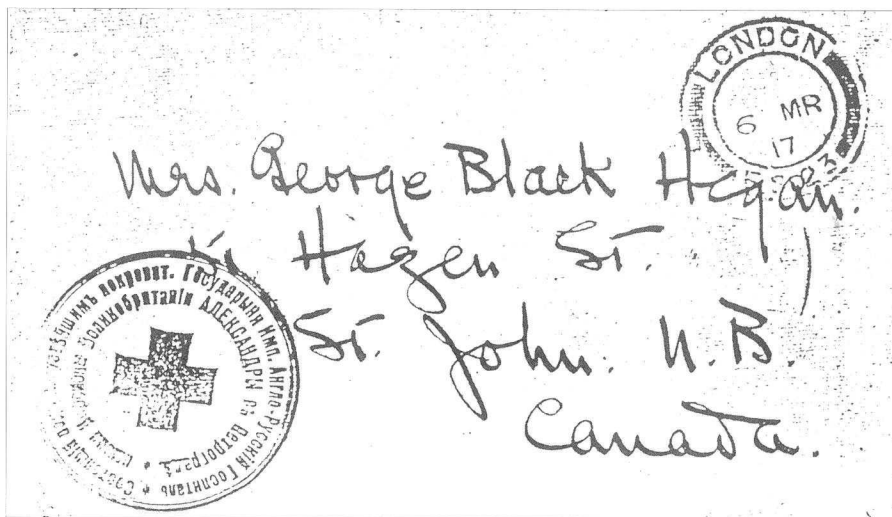 LONDON
6 MR
17
Mrs. George Black Hegan.
Hazen St.
St. John. N.B.
Canada.
покровит. Государыни Имп. Англо-Русскій Госпиталь
Великобританіи АЛЕКСАНДРЫ въ Петроградѣ